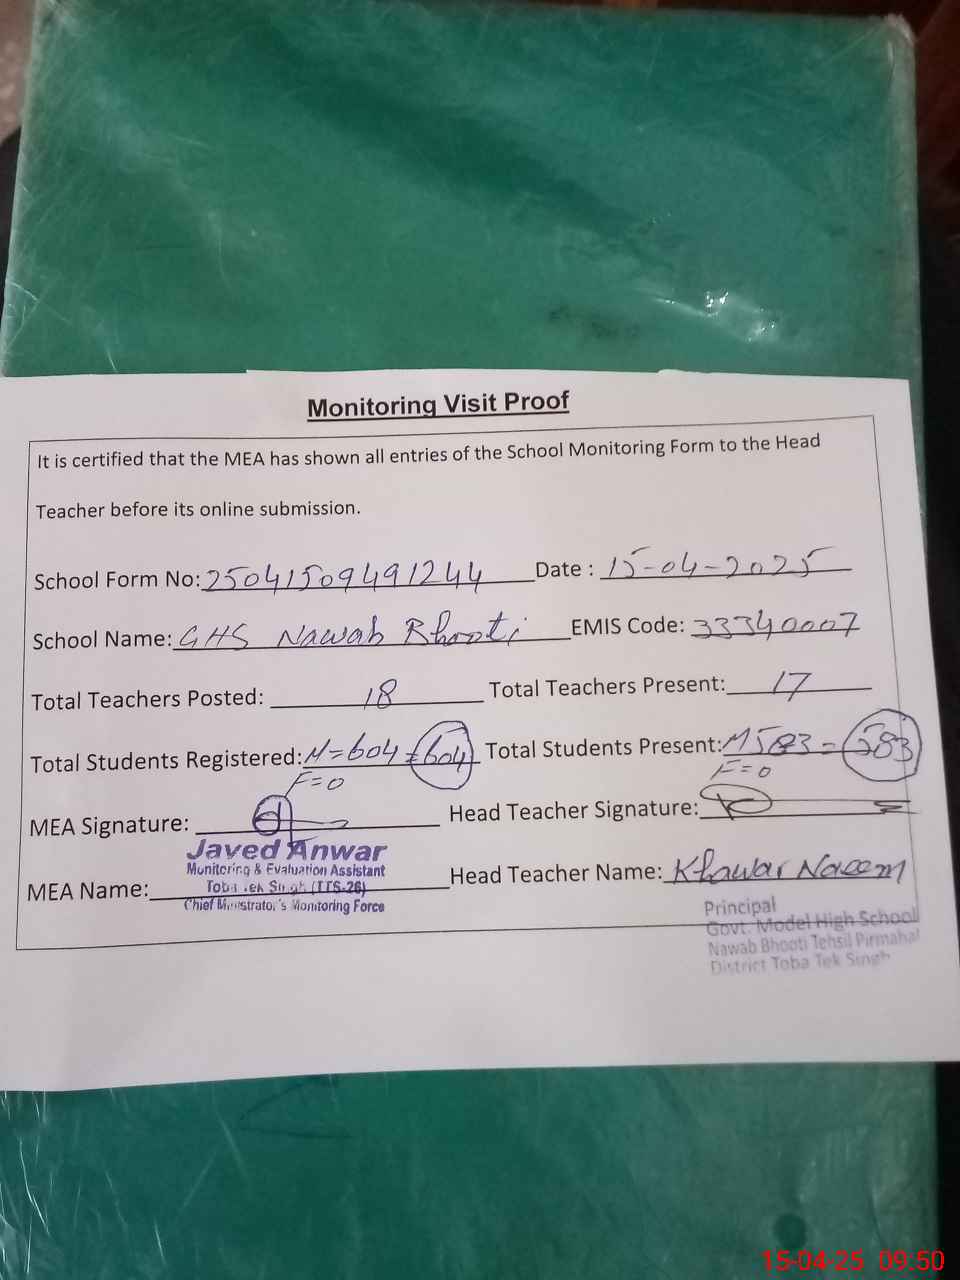 Monitoring Visit Proof
It is certified that the MEA has shown all entries of the School Monitoring Form to the Head
Teacher before its online submission.
School Form No: 25041509491244 Date : 15-04-2025
School Name: GHS Nawab Bhooti EMIS Code: 33340007
Total Teachers Posted: 18 Total Teachers Present: 17
Total Students Registered: M=604 = 604 Total Students Present: M 583 = 583
F=0 F=0
MEA Signature: Head Teacher Signature:
Javed Anwar
Monitoring & Evaluation Assistant
Toba Tek Singh (TTS-26)
MEA Name: Head Teacher Name: Khawar Naeem
Chief Ministrator's Monitoring Force
Principal
Govt. Model High School
Nawab Bhooti Tehsil Pirmahal
District Toba Tek Singh
15-04-25 09:50